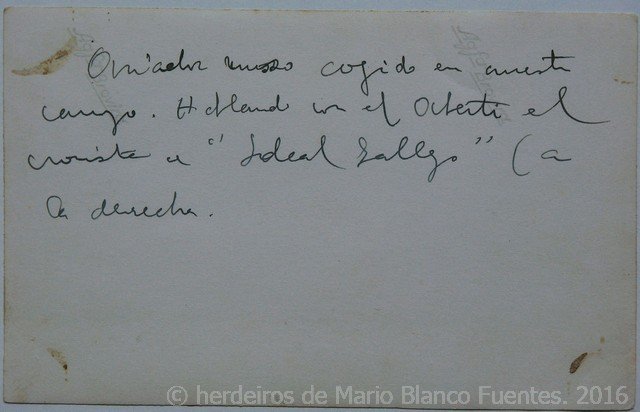 Aviador ruso cogido en nuestro
campo. Hablando con el Octerti el
cronista de "Ideal Gallego" (a
la derecha.
© herdeiros de Mario Blanco Fuentes. 2016